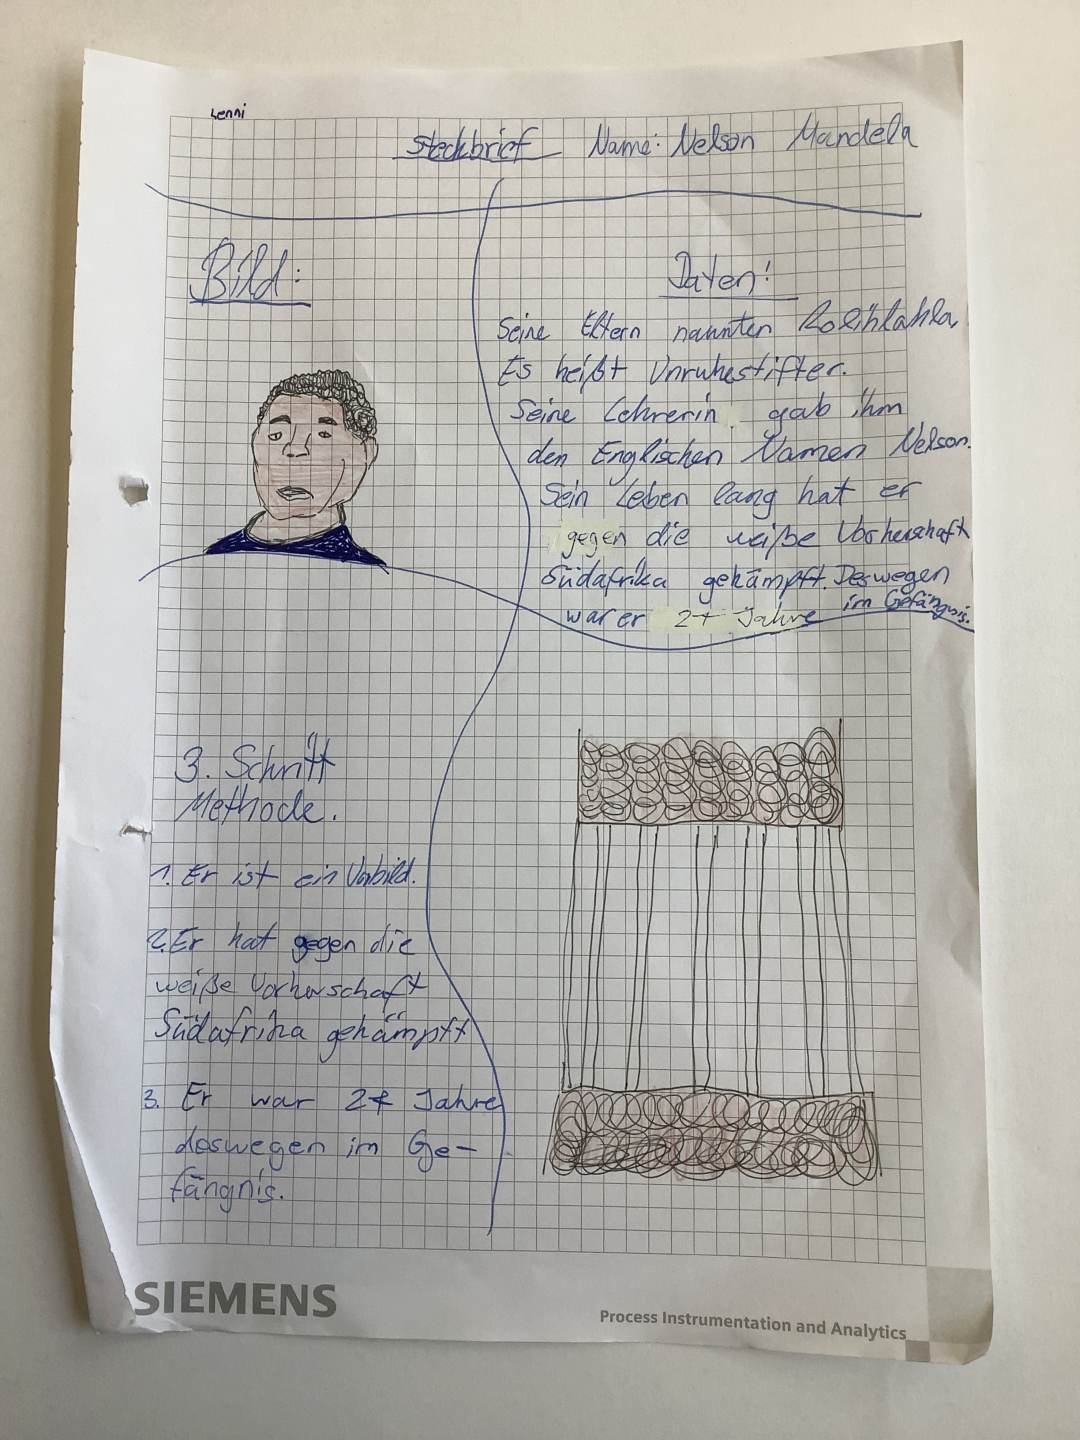 Lenni
Steckbrief Name: Nelson Mandela
Bild:
Daten!
Seine Eltern nannten Rolihlahla
Es heißt Unruhestifter.
Seine Lehrerin gab ihm
den Englischen Namen Nelson.
Sein Leben lang hat er
gegen die weiße Vorherschaft
Südafrika gekämpft. Deswegen
war er 27 Jahre im Gefängnis.
3. Schritt
Methode.
1. Er ist ein Vorbild.
2. Er hat gegen die
weiße Vorherschaft
Südafrika gekämpft
3. Er war 27 Jahre
deswegen im Ge-
fängnis.
SIEMENS
Process Instrumentation and Analytics